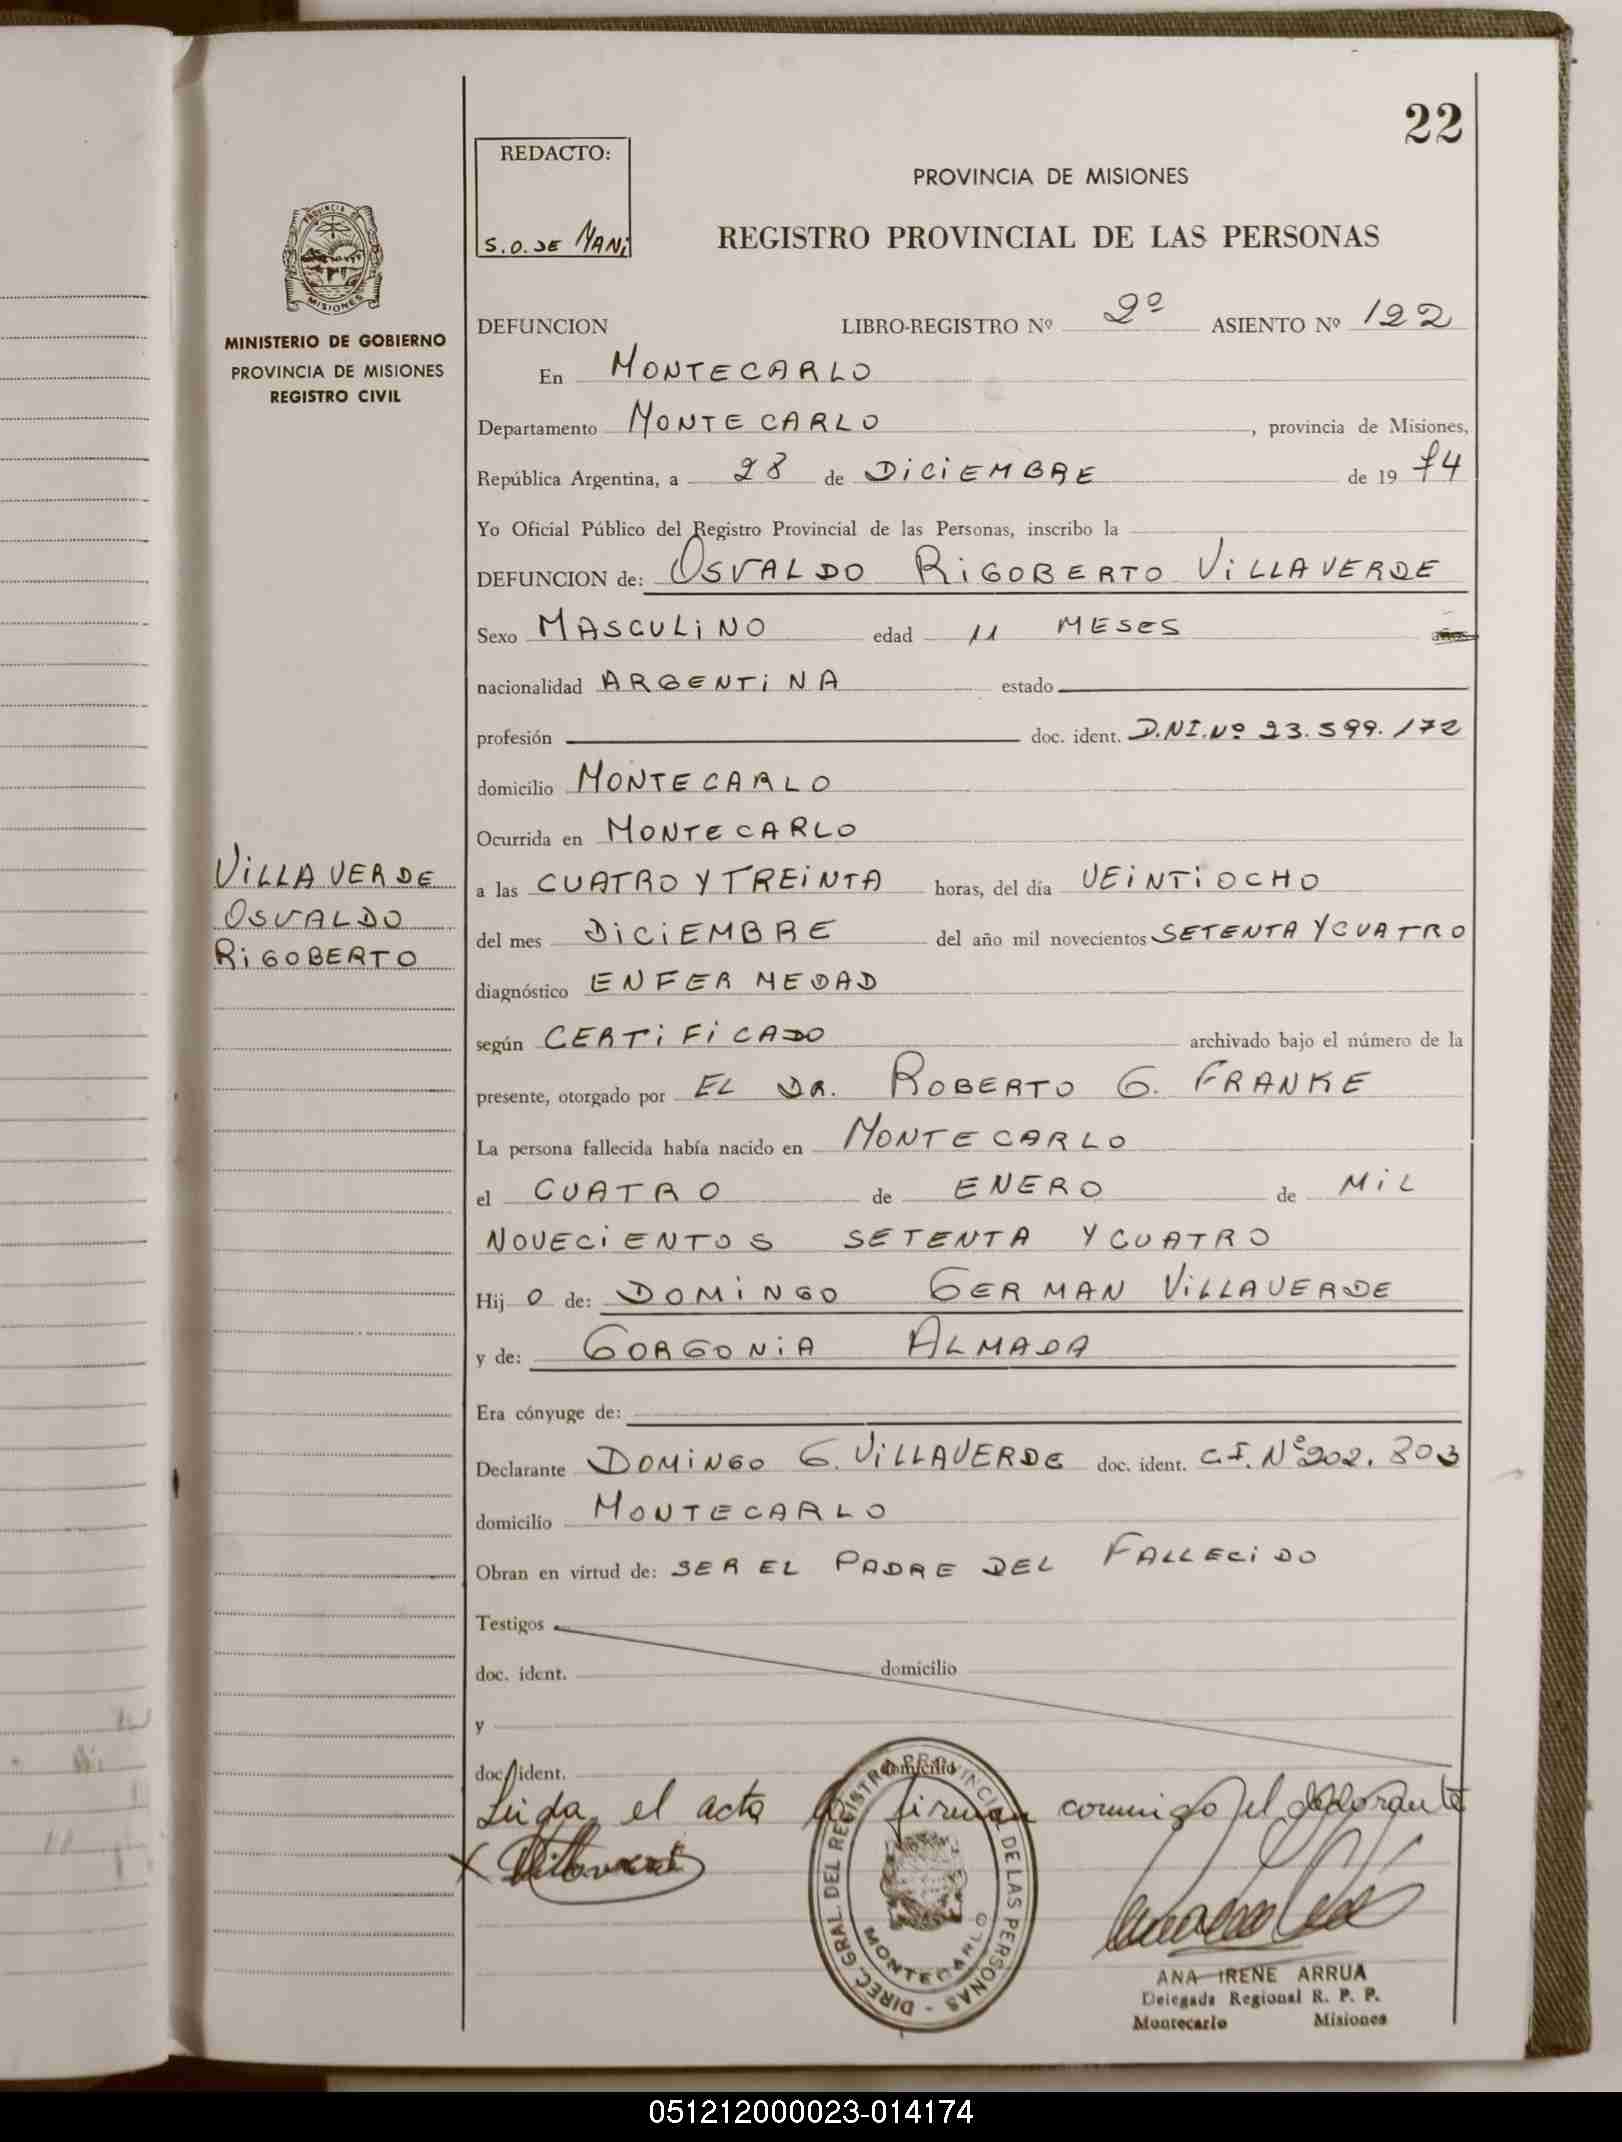 22
REDACTO:
S.O. DE MANI
PROVINCIA DE MISIONES
REGISTRO PROVINCIAL DE LAS PERSONAS
PROVINCIA DE MISIONES
MINISTERIO DE GOBIERNO
PROVINCIA DE MISIONES
REGISTRO CIVIL
DEFUNCION LIBRO-REGISTRO Nº 2º ASIENTO Nº 122
En MONTECARLO
Departamento MONTECARLO, provincia de Misiones,
República Argentina, a 28 de DICIEMBRE de 1974
Yo Oficial Público del Registro Provincial de las Personas, inscribo la
DEFUNCION de: OSVALDO RIGOBERTO VILLAVERDE
Sexo MASCULINO edad 11 MESES años
nacionalidad ARGENTINA estado
profesión doc. ident. D.N.I. Nº 23.599.172
domicilio MONTECARLO
Ocurrida en MONTECARLO
VILLAVERDE
OSVALDO
RIGOBERTO
a las CUATRO Y TREINTA horas, del día VEINTIOCHO
del mes DICIEMBRE del año mil novecientos SETENTA Y CUATRO
diagnóstico ENFERMEDAD
según CERTIFICADO archivado bajo el número de la
presente, otorgado por EL DR. ROBERTO G. FRANKE
La persona fallecida había nacido en MONTECARLO
el CUATRO de ENERO de MIL
NOVECIENTOS SETENTA Y CUATRO
Hij O de: DOMINGO GERMAN VILLAVERDE
y de: GORGONIA ALMADA
Era cónyuge de:
Declarante DOMINGO G. VILLAVERDE doc. ident. C.I. Nº 202.803
domicilio MONTECARLO
Obran en virtud de: SER EL PADRE DEL FALLECIDO
Testigos
doc. ident. domicilio
y
doc. ident. domicilio
Leida el acta la firman conmigo el declarante
X Villaverde
DIREC. GRAL. DEL REGISTRO PROVINCIAL DE LAS PERSONAS -
MONTECARLO
ANA IRENE ARRUA
Delegada Regional R. P. P.
Montecarlo Misiones
051212000023-014174